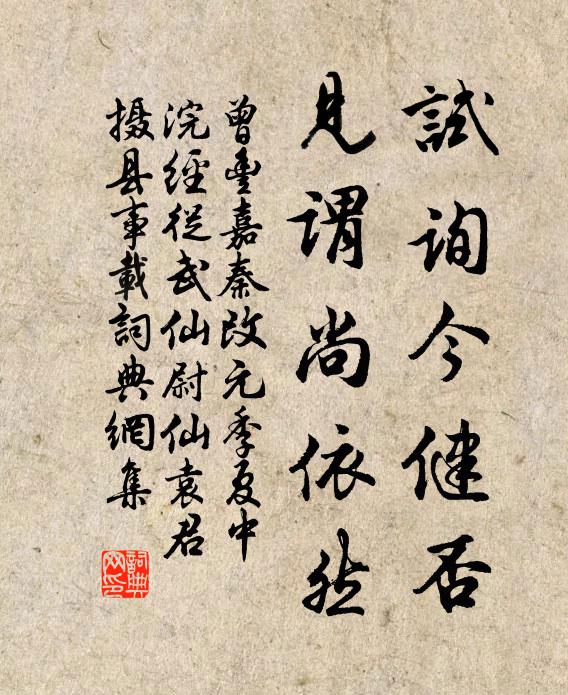 試詢今健否
見謂尚依然
曾豐嘉秦改元季夏中
浣經從武仙尉仙袁君
摄县事載詞典網集
詞典网印